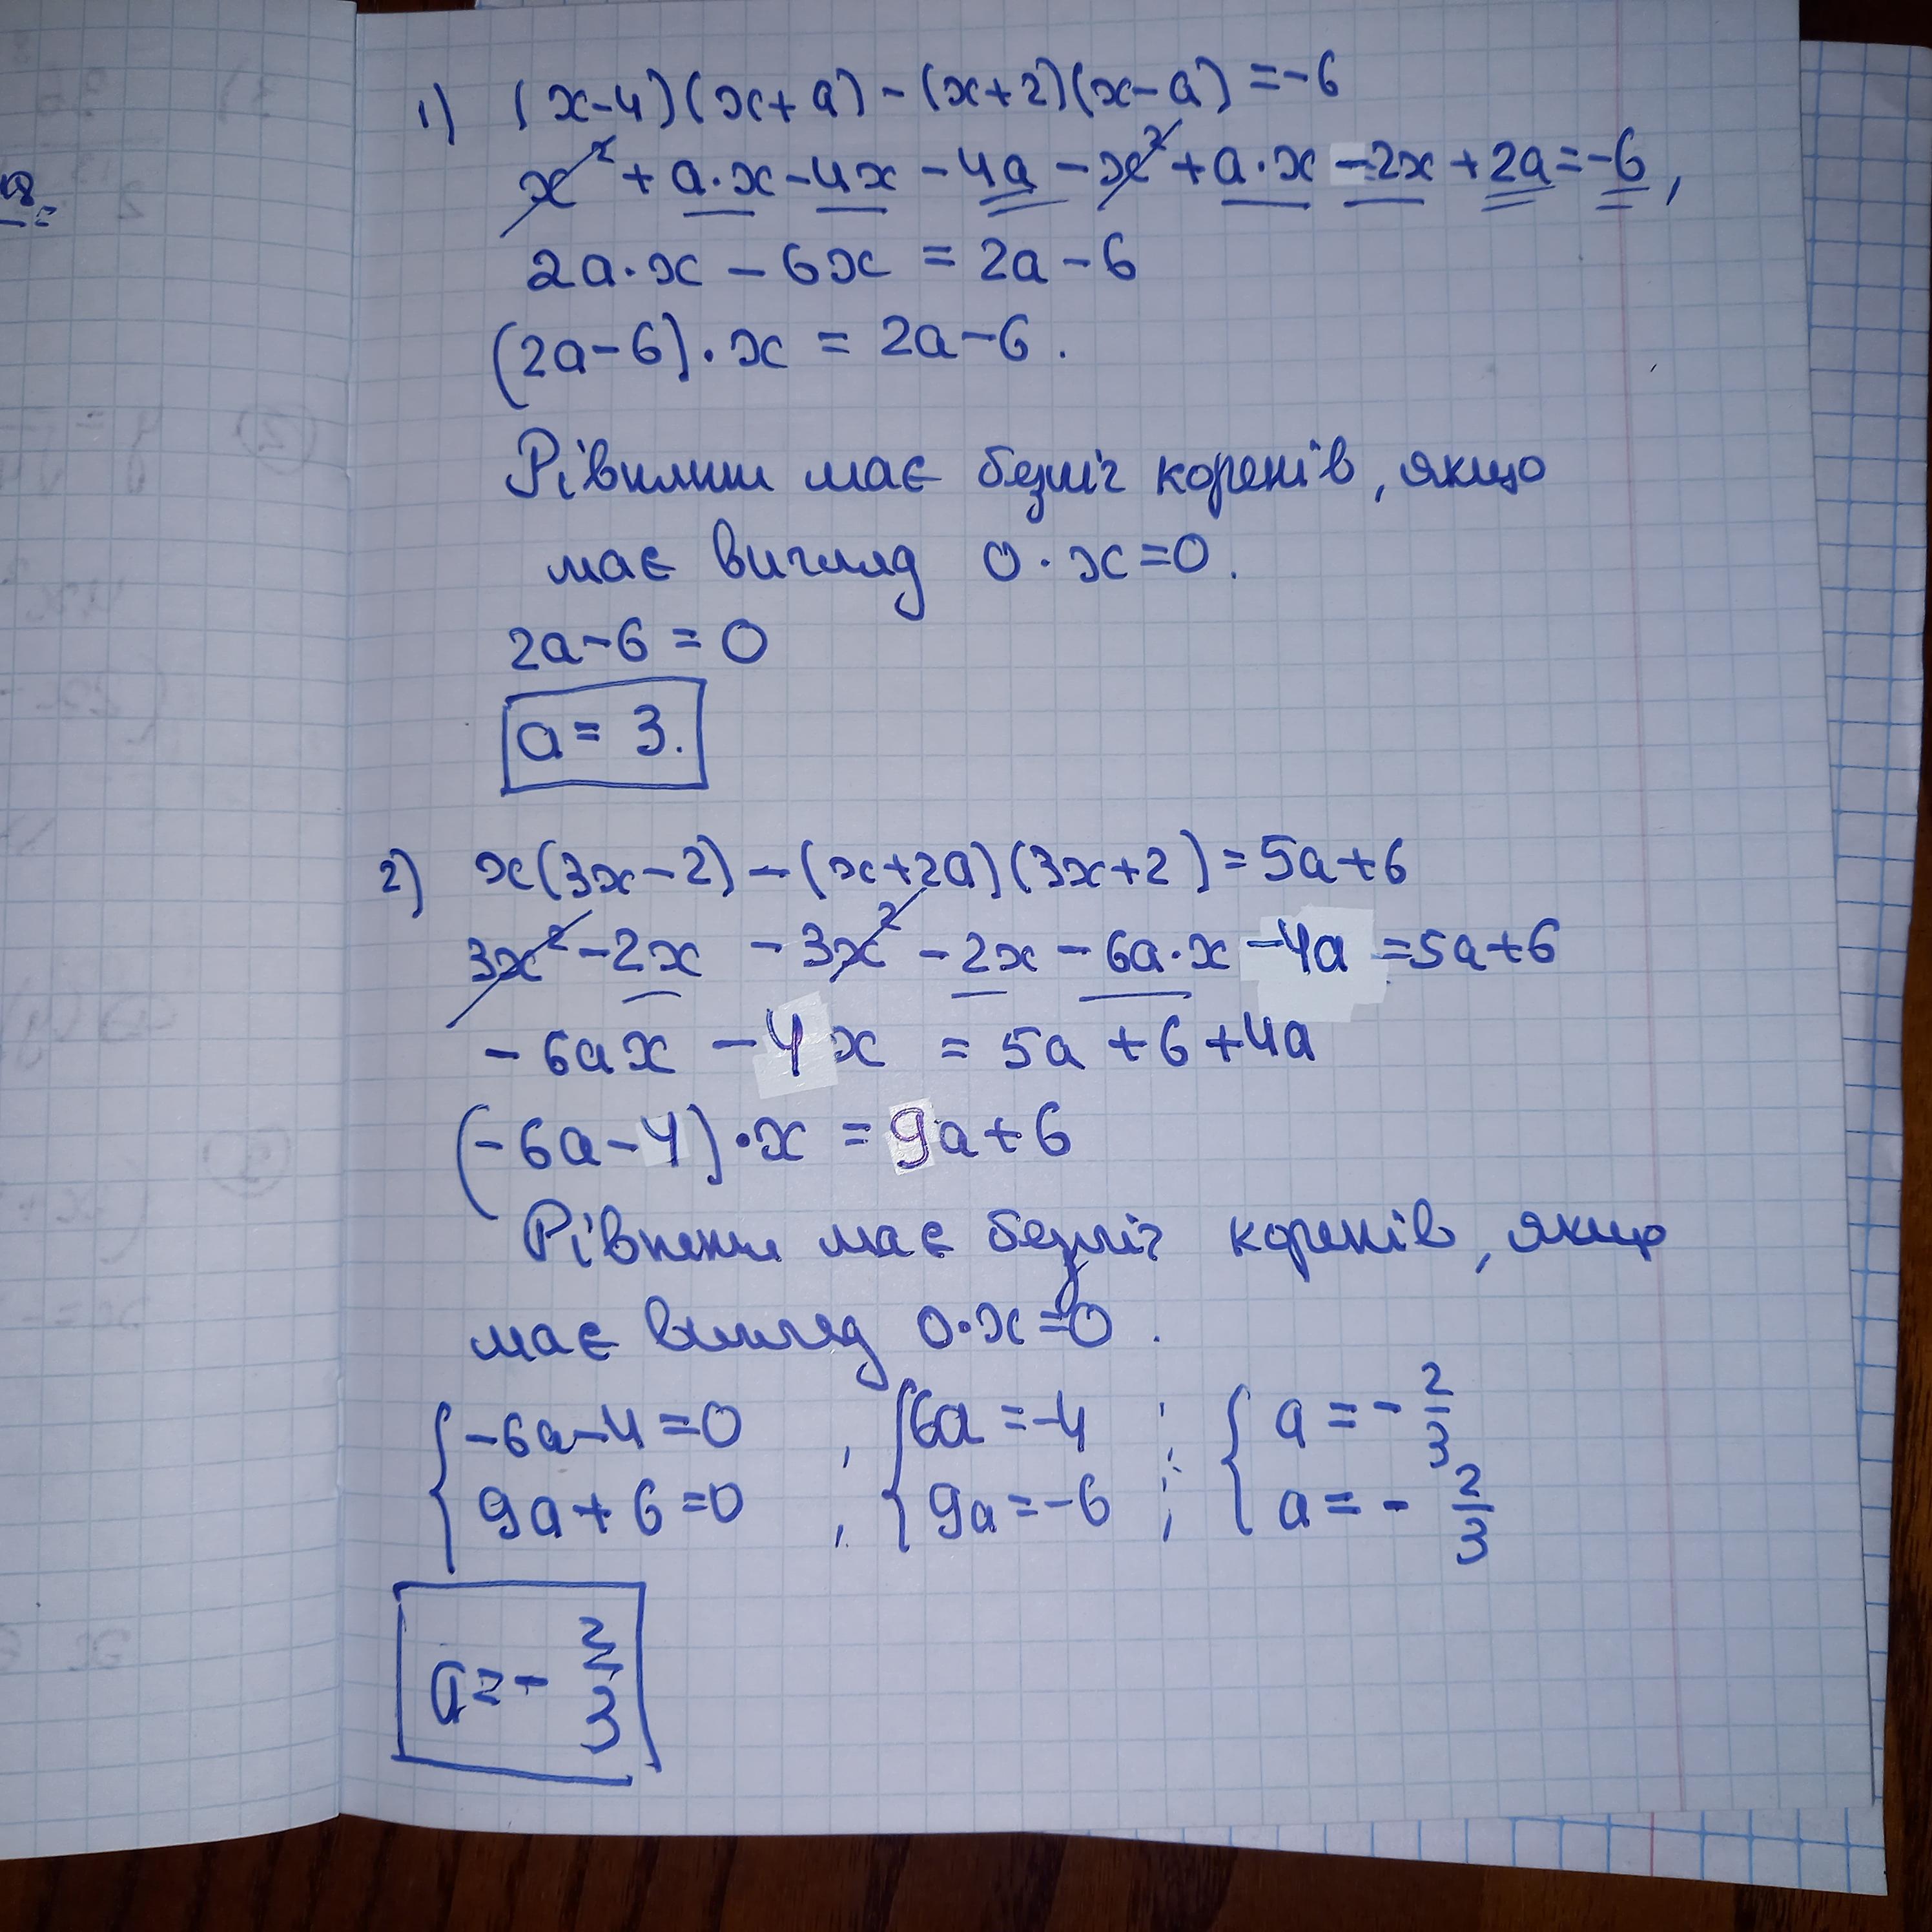 1) (x-4)(x+a)-(x+2)(x-a)=-6
x²+a·x-4x-4a-x²+a·x-2x+2a=-6,
2a·x-6x=2a-6
(2a-6)·x=2a-6.
Рівняння має безліч коренів, якщо
має вигляд 0·x=0.
2a-6=0
a=3.
2) x(3x-2)-(x+2a)(3x+2)=5a+6
3x²-2x-3x²-2x-6a·x-4a=5a+6
-6ax-4x=5a+6+4a
(-6a-4)·x=9a+6
Рівняння має безліч коренів, якщо
має вигляд 0·x=0.
{-6a-4=0, {6a=-4; {a=-2/3
9a+6=0, 9a=-6; a=-2/3
a=-2/3